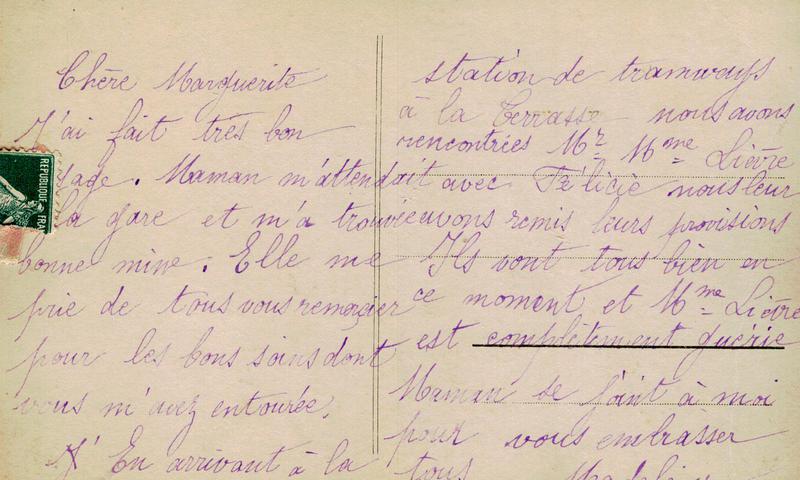 Chère Marguerite
J'ai fait très bon
yage. Maman m'attendait avec Félicie
la gare et m'a trouvée
bonne mine. Elle me
prie de tous vous remercier
pour les bons soins dont
vous m'avez entourée.
En arrivant à la
station de tramways
à la Terrasse nous avons
rencontrées Mr Mme Lièvre
nous leur
avons remis leurs provisions
Ils vont tous bien en
ce moment et Mme Lièvre
est complètement guérie
Maman se joint à moi
pour vous embrasser
tous
REPUBLIQUE FRAN